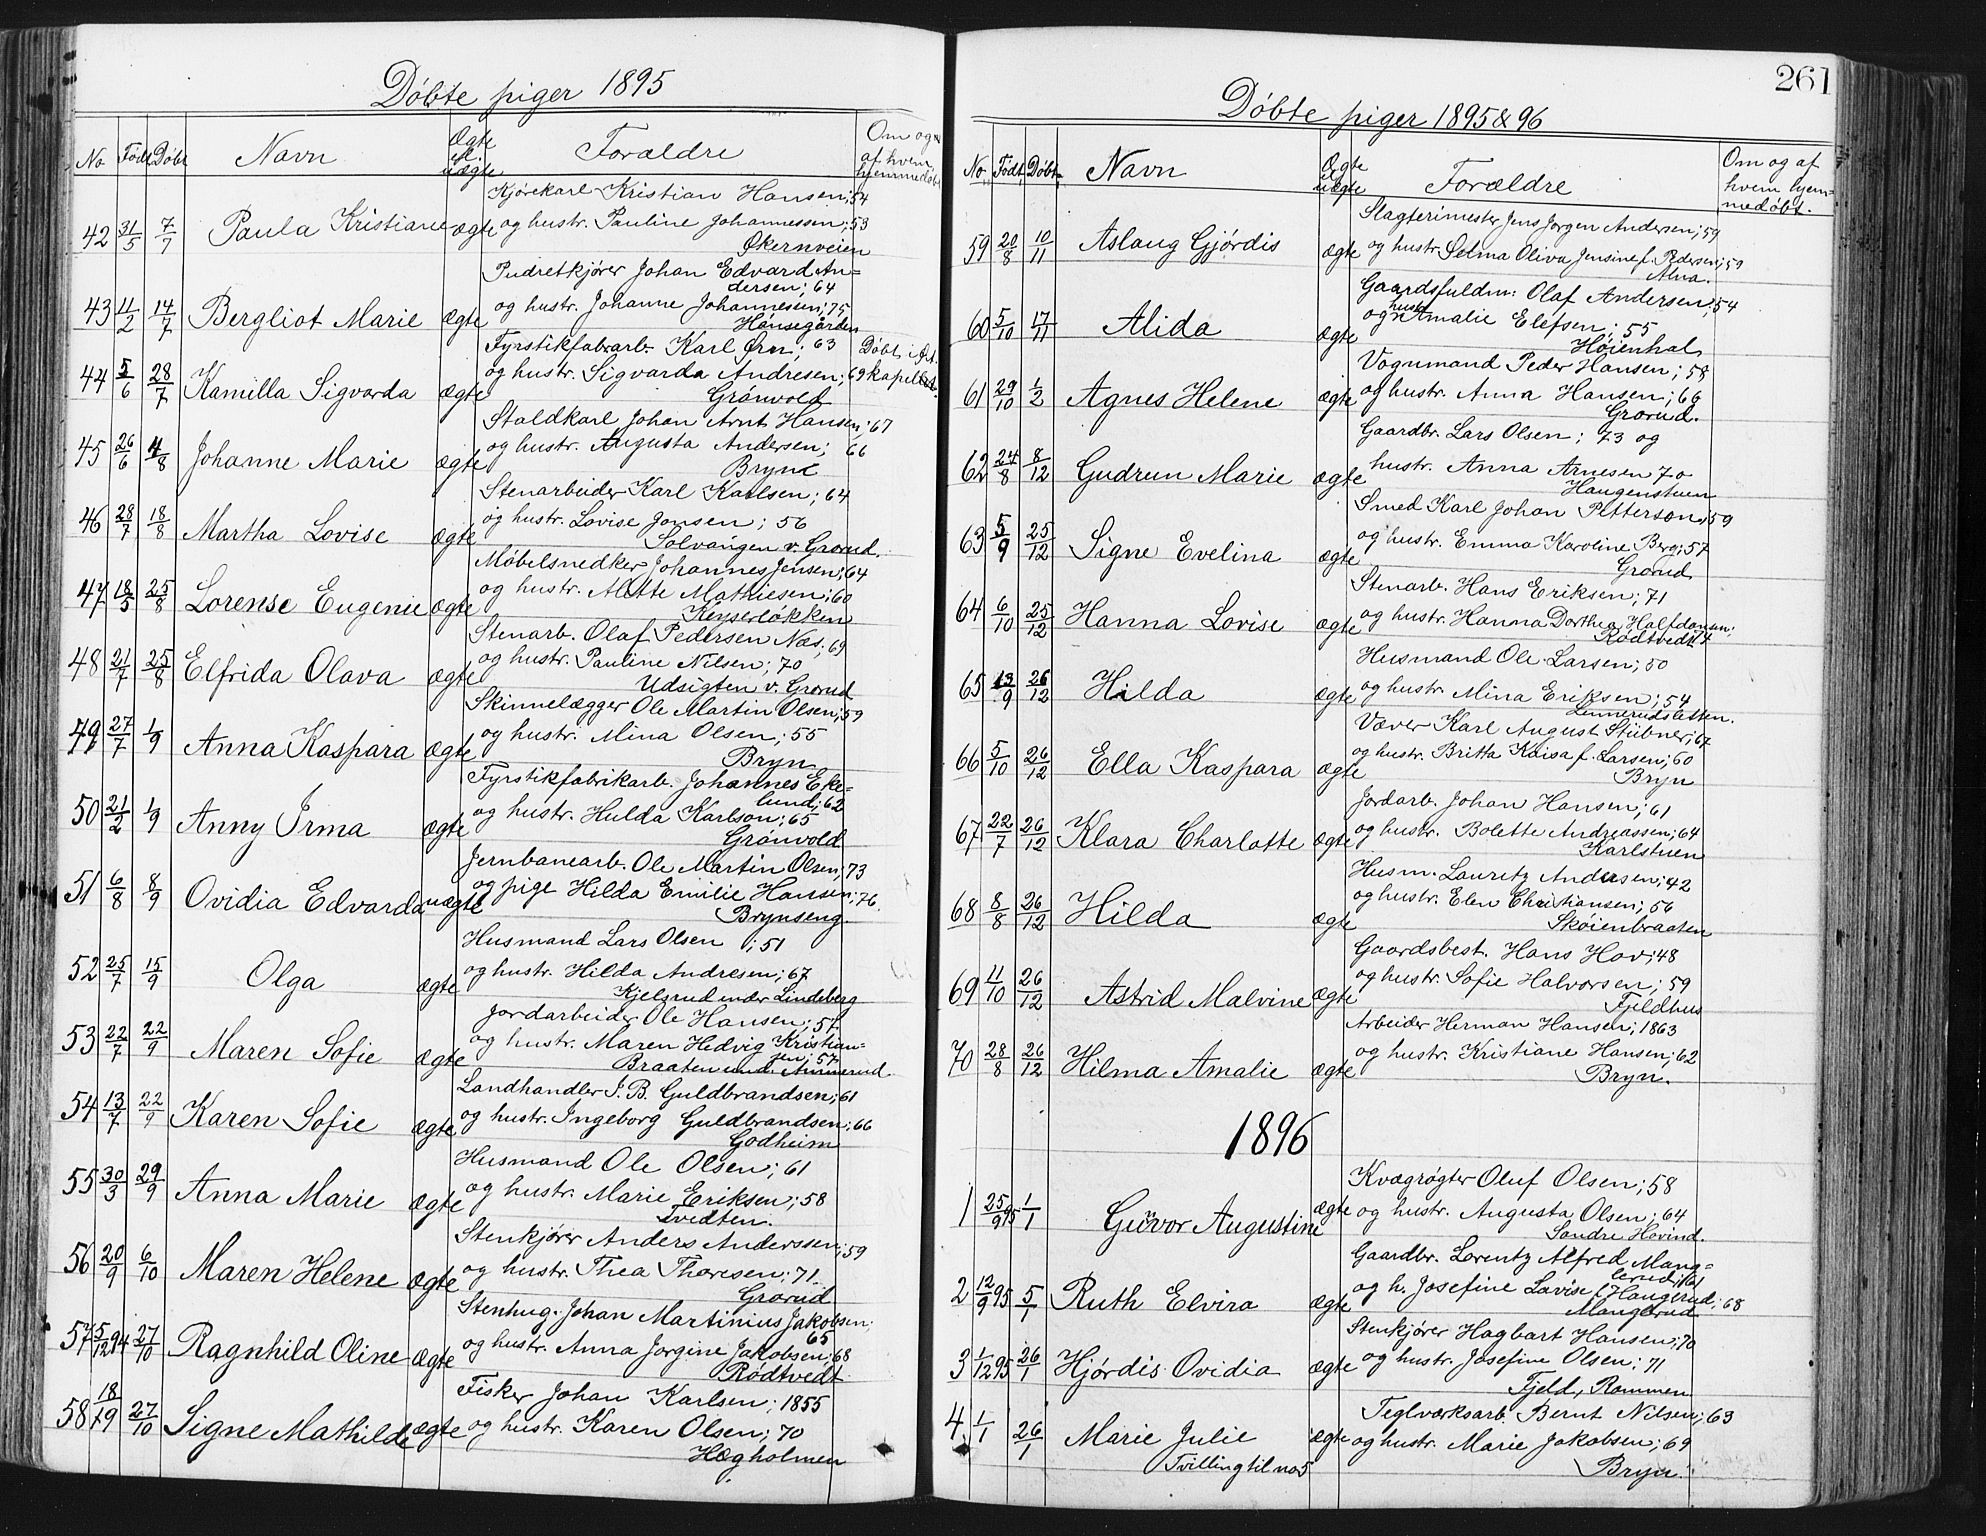 Døbte piger 1895
No Født Døbt Navn Ægte el. uægte Forældre Om og af hvem hjemmedøbt
Kjørekarl Kristian Hansen; 54
42 31/5 7/7 Paula Kristiane ægte og hustr. Pauline Johannessen; 53
Økernveien
Pudretkjører Johan Edvard An=
dersen; 64
43 11/2 14/7 Bergliot Marie ægte og hustr. Johanne Johannesen; 75
Hønsegården
Fyrstikfabrarb. Karl Ørn; 63 Døbt i
44 5/6 28/7 Kamilla Sigvarda ægte og hustr. Sigvarda Andresen; 69 kapellet.
Grønvold
Staldkarl Johan Arnt Hansen; 67
45 26/6 4/8 Johanne Marie ægte og hustr. Augusta Andersen; 66
Bryn
Stenarbeider Karl Karlsen; 64
46 28/7 18/8 Martha Lovise ægte og hustr. Lovise Jonsen; 56
Solvangen v. Grorud.
Møbelsnedker Johannes Jensen; 64
47 18/5 25/8 Lorense Eugenie ægte og hustr. Alette Mathiesen; 60
Keyserløkken
Stenarb. Olaf Pedersen Næs; 69
48 21/7 25/8 Elfrida Olava ægte og hustr. Pauline Nilsen; 70
Udsigten v. Grorud
Skinnelægger Ole Martin Olsen; 59
49 27/7 1/9 Anna Kaspara ægte og hustr. Mina Olsen; 55
Bryn
Fyrstikfabrikarb. Johannes Eke=
lund; 62
50 21/2 1/9 Anny Irma ægte og hustr. Hulda Karlson; 65
Grønvold
Jernbanearb. Ole Martin Olsen; 73
51 6/8 8/9 Ovidia Edvarda uægte og pige Hilda Emilie Hansen; 76.
Brynseng
Husmand Lars Olsen; 51
52 25/7 15/9 Olga ægte og hustr. Hilda Andresen; 67
Kjelsrud under Lindeberg
Jordarbeider Ole Hansen; 57
53 22/7 22/9 Maren Sofie ægte og hustr. Maren Hedvig Kristian=
sen; 57
Braaten und. Ammerud.
Landhandler J. B. Guldbrandsen; 61
54 13/7 22/9 Karen Sofie ægte og hustr. Ingeborg Guldbrandsen; 66
Godheim
Husmand Ole Olsen; 61
55 30/3 29/9 Anna Marie ægte og hustr. Marie Eriksen; 58
Tvedten.
Stenkjører Anders Anderssen; 59
56 20/9 6/10 Maren Helene ægte og hustr. Thea Thoresen; 71.
Grorud
Stenhug. Johan Martinius Jakobsen;
65
57 5/12 94 27/10 Ragnhild Oline ægte og hustr. Anna Jorgine Jakobsen; 68
Rødtvedt
Fisker Johan Karlsen; 1855
58 18/9 27/10 Signe Mathilde ægte og hustr. Karen Olsen; 70
Hægholmen
261
Døbte piger 1895 & 96
No Født Døbt Navn Ægte el. uægte Forældre Om og af hvem hjem=medøbt.
Slagterimester Jens Jørgen Andersen; 59
59 20/8 10/11 Aslaug Gjørdis ægte og hustr. Selma Oliva Jensine f. Pedersen; 59
Alna.
Gaardsfuldm: Olaf Andersen; 54
60 5/10 17/11 Alida ægte og hustr. Amalie Elefsen; 55
Høienhal
Vognmand Peder Hansen; 58
61 29/10 1/2 Agnes Helene ægte og hustr. Anna Hansen; 66
Grorud.
Gaardbr. Lars Olsen; 73 og
62 24/8 8/12 Gudrun Marie ægte hustr. Anna Arnesen 70
Haugenstuen
Smed Karl Johan Petterson; 59
63 5/9 25/12 Signe Evelina ægte og hustr. Emma Karoline Berg; 57
Grorud
Stenarb. Hans Eriksen; 71
64 6/10 25/12 Hanna Lovise ægte og hustr. Hanna Dorthea Halfdansen;
Rødtvedt 74
Husmand Ole Larsen; 50
65 13/9 26/12 Hilda ægte og hustr. Mina Eriksen; 54
Linnerudsletten.
Væver Karl August Stübner; 67
66 5/10 26/12 Ella Kaspara ægte og hustr. Britta Kaisa f. Larsen; 60
Bryn
Jordarb. Johan Hansen; 61
67 22/7 26/12 Klara Charlotte ægte og hustr. Bolette Andreassen; 64
Karlstuen
Husm. Lauretz Andersen; 42
68 8/8 26/12 Hilda ægte og hustr. Elen Christiansen; 56
Skøienbraaten
Gaardsbest. Hans Hov; 48
69 11/10 26/12 Astrid Malvine ægte og hustr. Sofie Halvorsen; 59
Fjeldhus
Arbeider Herman Hansen; 1863
70 28/8 26/12 Hilma Amalie ægte og hustr. Kristiane Hansen; 62
Bryn.
1896
Kvægrøgter Oluf Olsen; 58
1 25/9 95 1/1 Guvor Augustine ægte og hustr. Augusta Olsen; 64
Søndre Hovind.
Gaardbr. Lorentz Alfred Mang=
lerud; 61
2 12/9 95 5/1 Ruth Elvira ægte og h. Josefine Lovise f. Haugerud; 68
Manglerud
Stenkjører Hagbart Hansen; 70
3 1/12 95 26/1 Hjørdis Ovidia ægte og hustr. Josefine Olsen; 71
Fjeld, Rommen
Teglværksarb. Bernt Nilsen; 63
4 1/1 26/1 Marie Julie ægte og hustr. Marie Jakobsen; 69
Tvilling til no 5 Bryn.